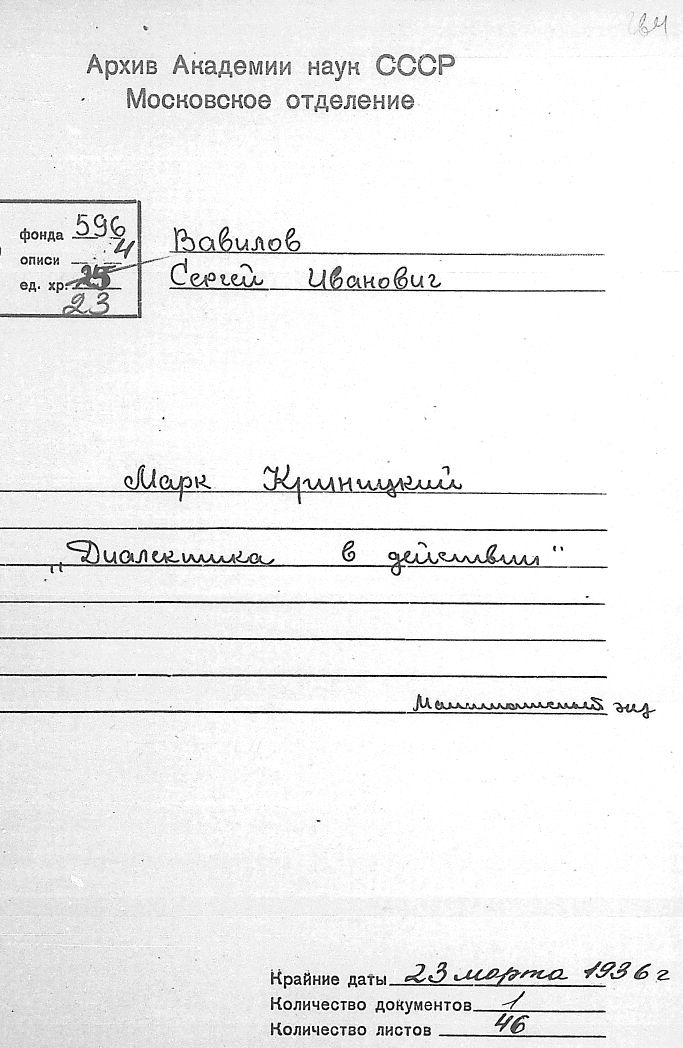 Архив Академии наук СССР
Московское отделение
фонда 596
описи 4
ед. хр. 25
23
Вавилов
Сергей Иванович
Марк Криницкий
„Диалектика в действии"
Машинописный экз
Крайние даты 23 марта 1936 г
Количество документов 1
Количество листов 46